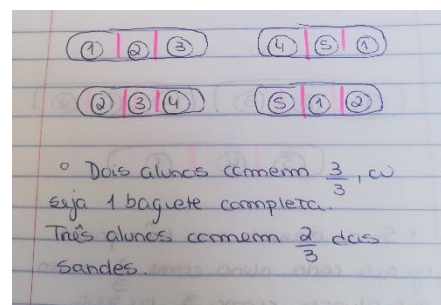 1 2 3 4 5 1
2 3 4 5 1 2
° Dois alunos comem 3/3, ou
seja 1 baguete completa.
Três alunos comem 2/3 das
sandes.